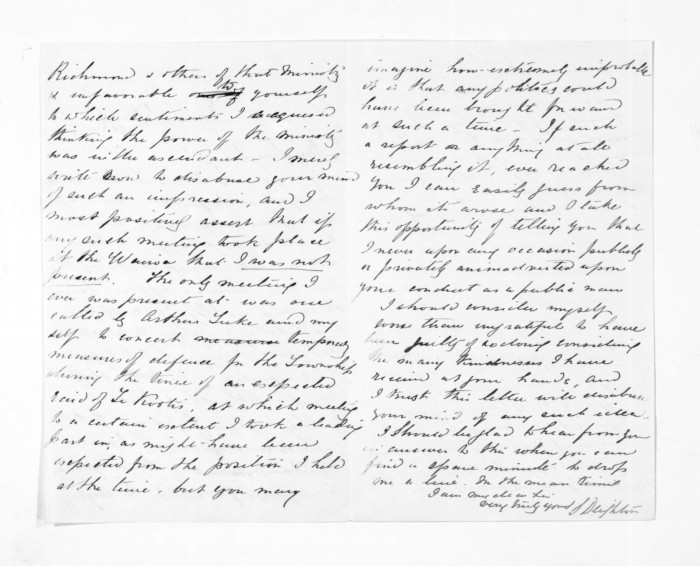 Richmond & others of that Ministry
& unfavorable to yourself
to which sentiments I acquiesced
thinking the power of the ministry
was in the ascendant - I merely
write now to disabuse your mind
of such an impression, and I
most positively assert that if
any such meeting took place
at the Wairoa that I was not
present. The only meeting I
ever was present at was one
called by Arthur Tuke and my
self to concert measures temporary
measures of defence for the Township
during the time of an expected
raid of Te Kootis, at which meeting
to a certain extent I took a leading
part in, as might have been
expected from the position I held
at the time, but you may
imagine how extremely improbable
it is that any politics could
have been brought forward
at such a time - If such
a report or anything at all
resembling it, ever reached
you I can easily guess from
whom it arose and I take
this opportunity of telling you that
I never upon any occasion publicly
or privately animadverted upon
your conduct as a public man
I should consider myself
worse than ungrateful to have
been guilty of so doing considering
the many kindnesses I have
received at your hands, and
I trust this letter will disabuse
your mind of any such idea.
I should be glad to hear from you
in answer to this when you can
find a spare minute to drop
me a line. In the mean time
I am my dear Sir
very truly yours S Deighton